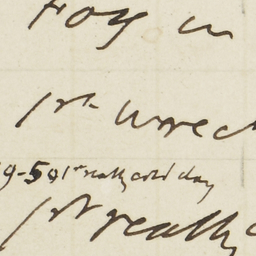 Fog in
1st wrec
9-59 1st really cold day
1st really